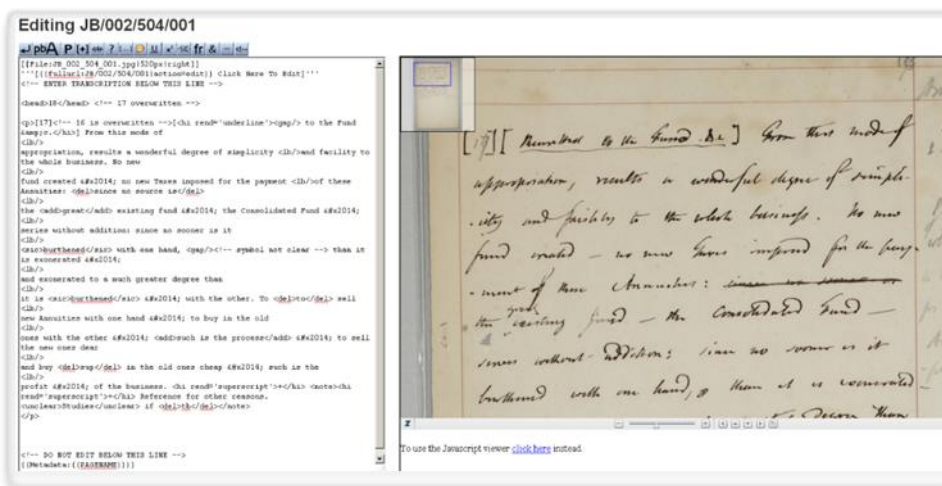 Editing JB/002/504/001
pb A P [+] ? U fr &
[[File:JB_002_504_001.jpg|520px|right]]
'''[{{fullurl:JB/002/504/001|action=edit}} Click Here To Edit]'''
<!-- ENTER TRANSCRIPTION BELOW THIS LINE -->
<head>18</head> <!-- 17 overwritten -->
<p>[17]<!-- 16 is overwritten -->[<hi rend='underline'><gap/> to the Fund
&amp;c.</hi>] From this mode of
<lb/>
appropriation, results a wonderful degree of simplicity <lb/>and facility to
the whole business. No new
<lb/>
fund created &#x2014; no new Taxes imposed for the payment <lb/>of these
Annuities: <del>since no source is</del>
<lb/>
the <add>great</add> existing fund &#x2014; the Consolidated Fund &#x2014;
<lb/>
series without addition: since no sooner is it
<lb/>
<sic>burthened</sic> with one hand, <gap/><!-- symbol not clear --> than it
is exonerated &#x2014;
<lb/>
and exonerated to a much greater degree than
<lb/>
it is <sic>burthened</sic> &#x2014; with the other. To <del>to</del> sell
<lb/>
new Annuities with one hand &#x2014; to buy in the old
<lb/>
ones with the other &#x2014; <add>such is the process</add> &#x2014; to sell
the new ones dear
<lb/>
and buy <del>sup</del> in the old ones cheap &#x2014; such is the
<lb/>
profit &#x2014; of the business. <hi rend='superscript'>+</hi> <note><hi
rend='superscript'>+</hi> Reference for other reasons.
<unclear>Studies</unclear> if <del>th</del></note>
</p>
<!-- DO NOT EDIT BELOW THIS LINE -->
{{Metadata:{{PAGENAME}}}}
[17] [ to the Fund &c ] From this mode of
appropriation, results a wonderful degree of simpli-
-city and facility to the whole business. No new
fund created — no new Taxes imposed for the pay-
-ment of these Annuities: since no source is
great
the existing fund — the Consolidated Fund —
series without addition: since no sooner is it
burthened with one hand, than it is exonerated
degree than
To use the Javascript viewer click here instead.